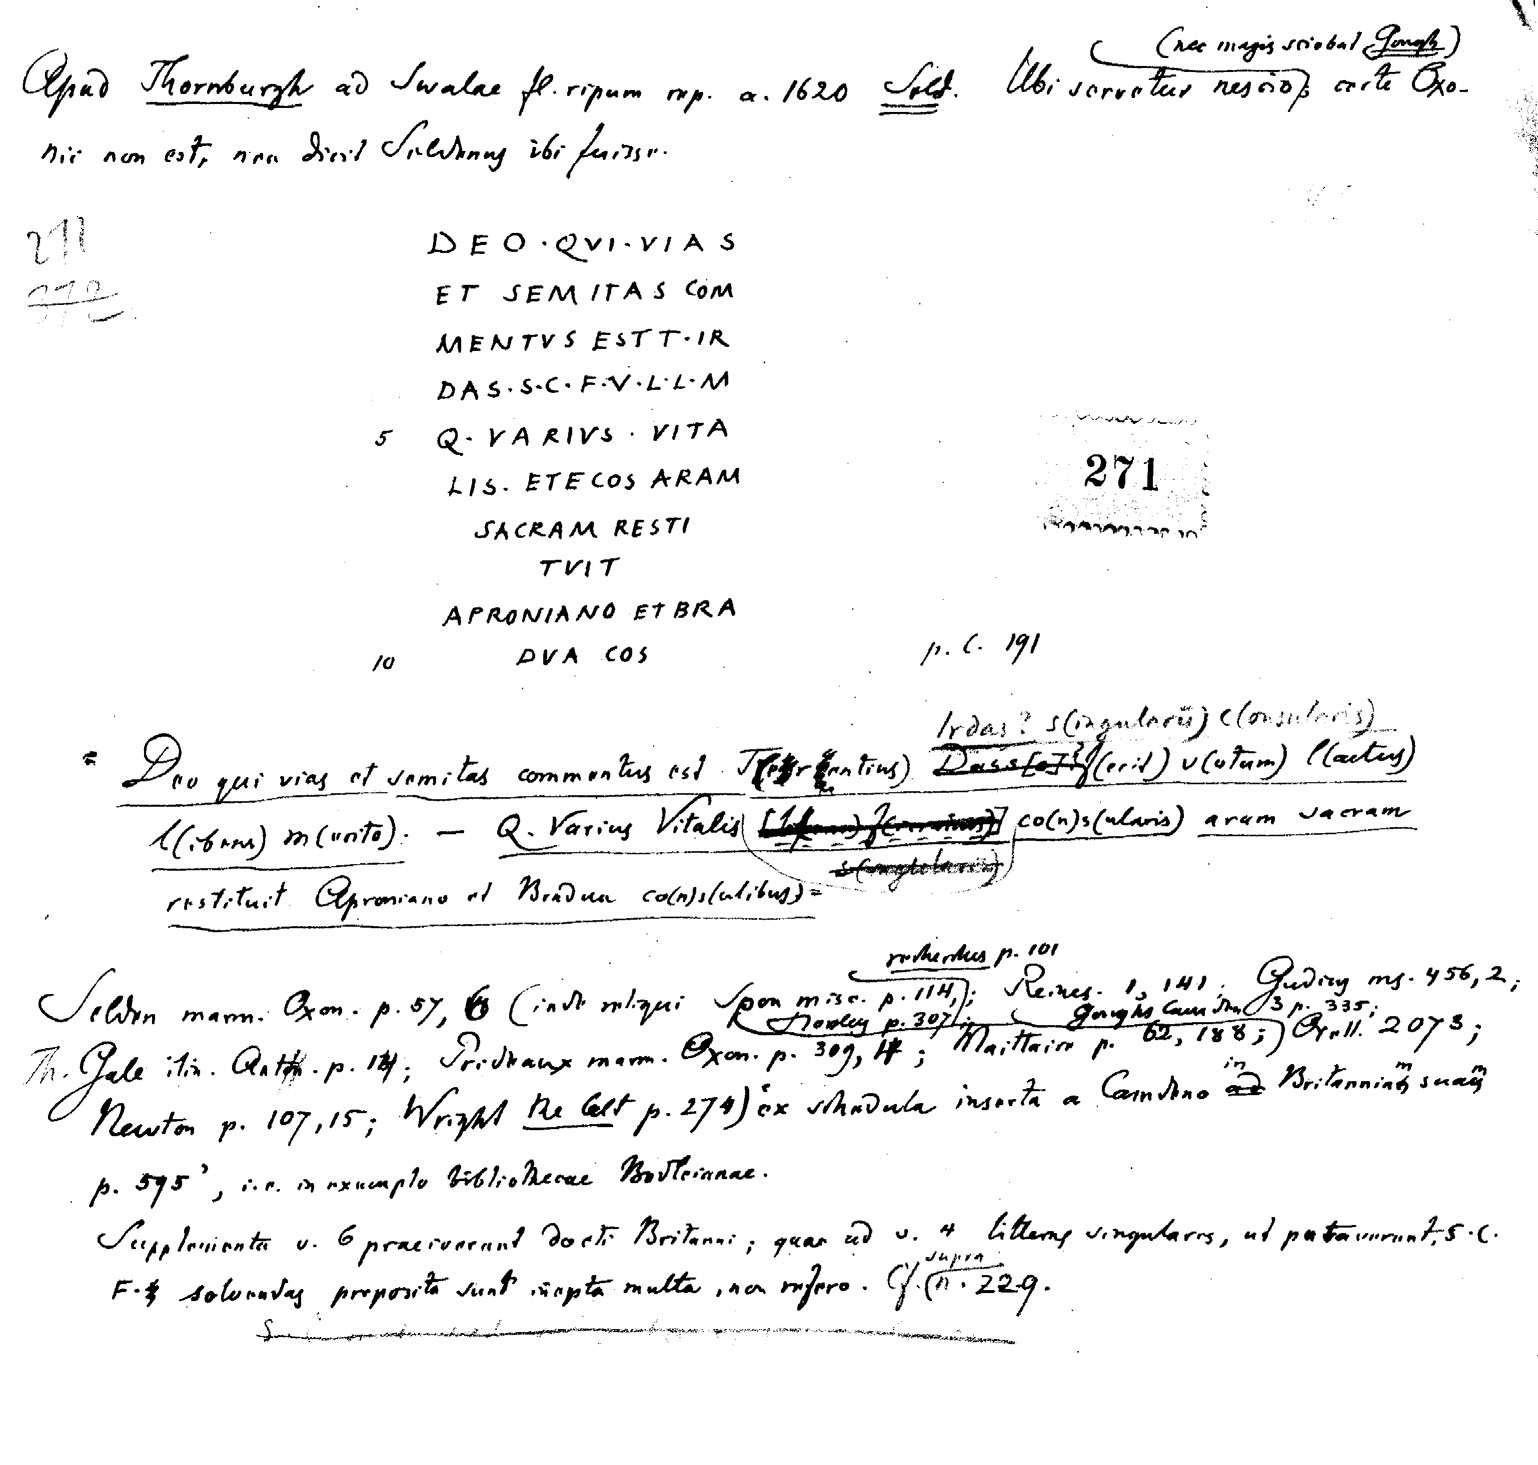 (nec magis sciebat Gough)
Apud Thornburgh ad Swalae fl. ripam rep. a. 1620 Seld. Ubi servetur nescio, certe Oxo-
nii non est, nec dicit Seldenus ibi fuisse.
271
272
DEO·QVI·VIAS
ET SEMITAS COM
MENTVS EST T·IR
DAS·S·C·F·V·L·L·M
5 Q·VARIVS·VITA
LIS·ETECOS ARAM
SACRAM RESTI
TVIT
APRONIANO ET BRA
10 DVA COS
271
p. C. 191
Irdas? s(ingularis) c(onsularis)
= Deo qui vias et semitas commentus est T(erentius) Dass[o]? f(ecit) v(otum) l(aetus)
l(ibens) m(erito). — Q. Varius Vitalis co(n)s(ularis) aram sacram
s(ingularis)
restituit Aproniano et Bradua co(n)s(ulibus) =
p. 101
Selden marm. Oxon. p. 57, 6 (inde reliqui Spon misc. p. 114; Reines. 1, 141. Gudius ms. 456,2;
Horsley p. 307; Goughs Camden 3 p. 335;
Th. Gale itin. Anton. p. 14; Prideaux marm. Oxon. p. 309, Maittaire p. 62, 188;) Orell. 2073;
Newton p. 107,15; Wright the Celt p. 274) ex schedula inserta a Camdeno in Britanniam suam
p. 595, i.e. in exemplo bibliothecae Bodleianae.
Supplementa v. 6 praeiverunt docti Britanni; quae ad v. 4 litteras singulares, ut putaverunt, S·C·
F· solvendas proposita sunt inepta multa, non refero. Cf. supra n. 229.